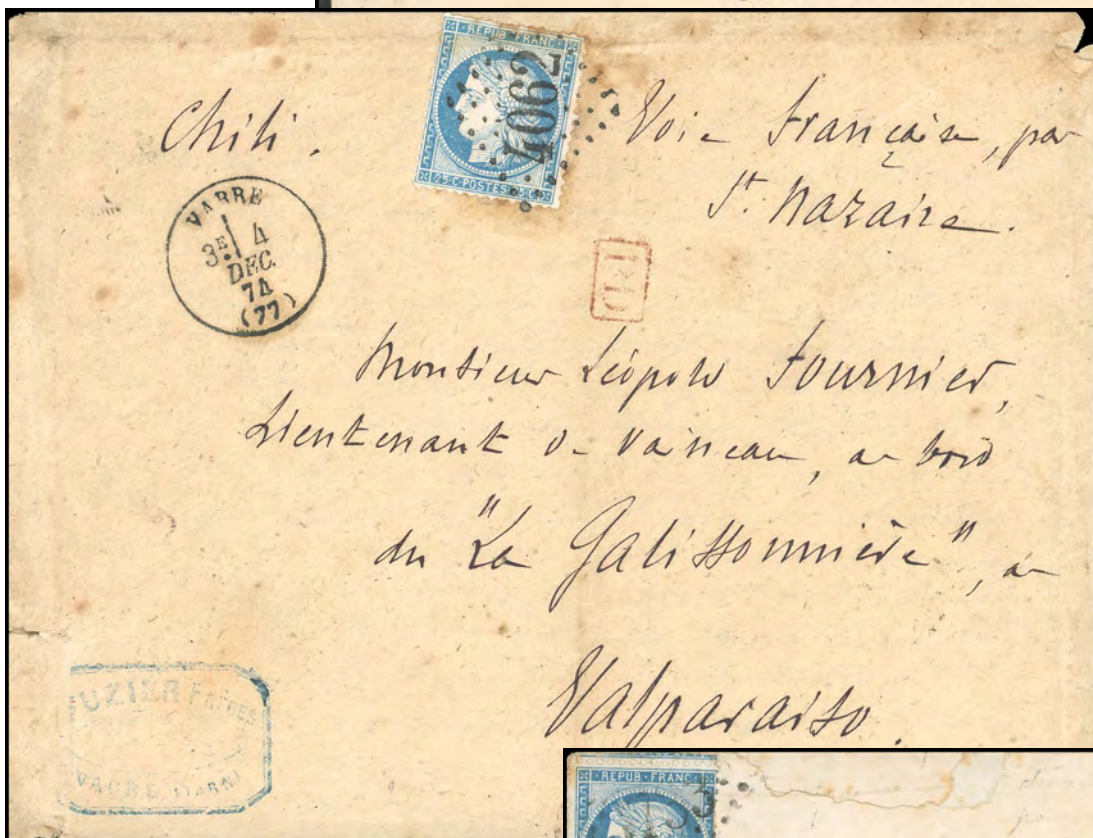 REPUB · FRANC ·
4062
25 · C · POSTES · 25 C ·
Chili.
Voie Française, par
St. Nazaire.
VABRE
3E 4
DEC.
74
(77)
PD
Monsieur Léopold Fournier,
Lieutenant de Vaisseau, à bord
du "La Galissonnière", à
Valparaiso.
UZIER FRÈRES
VABRE (TARN)
· REPUB · FRANC ·